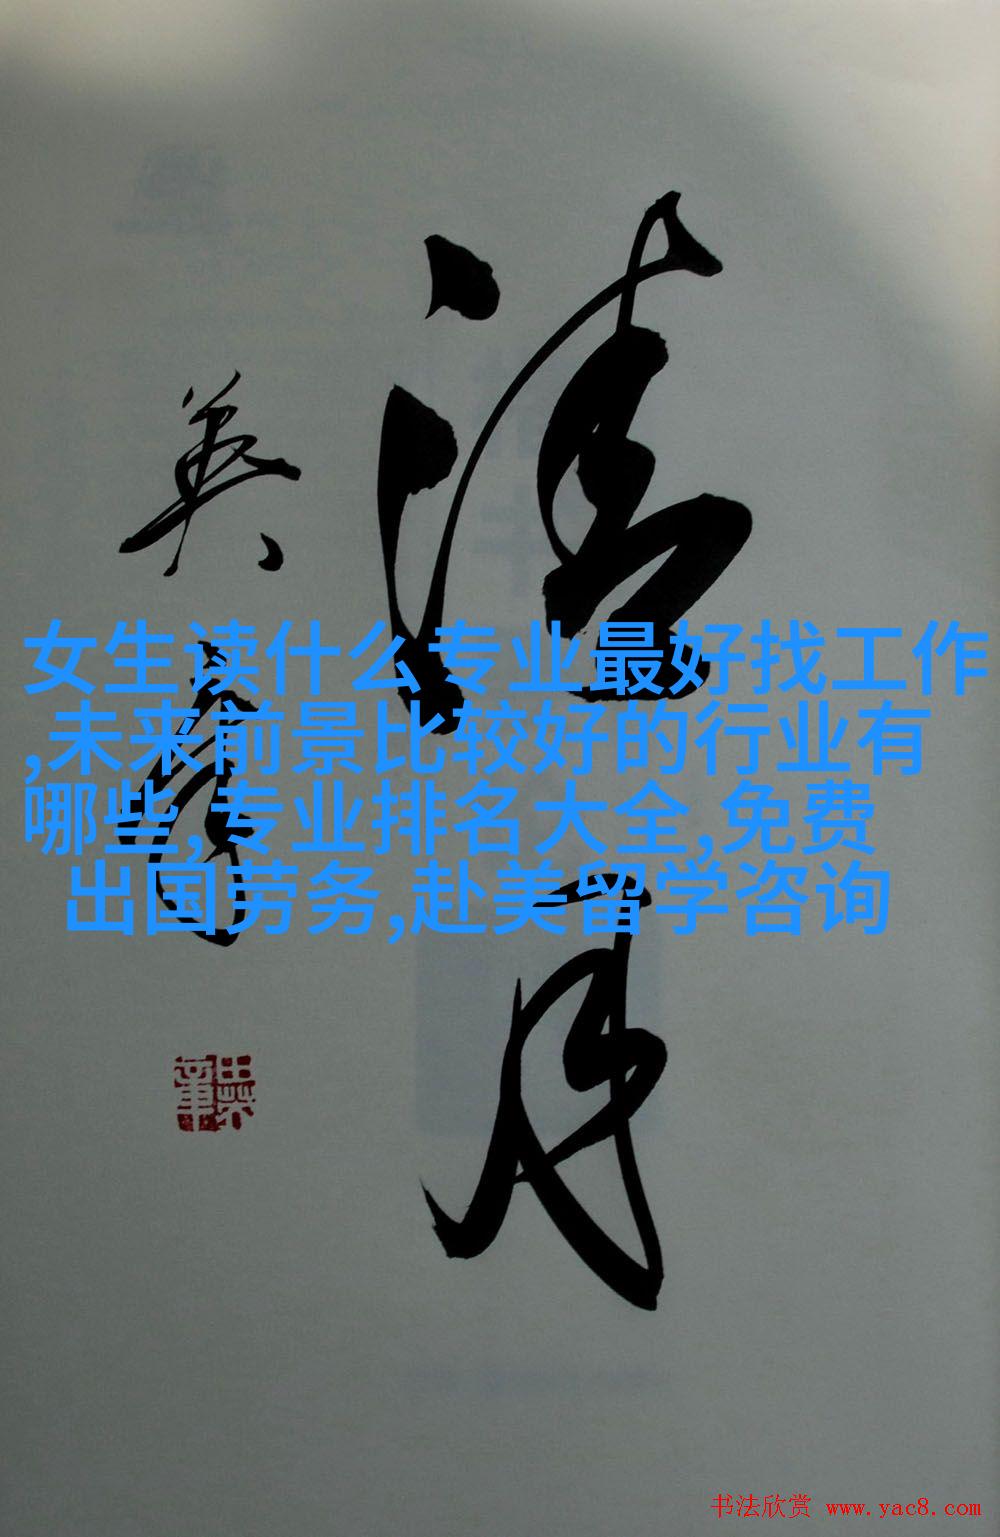 清月
英章
女生读什么专业最好找工作
,未来前景比较好的行业有
哪些,专业排名大全,免费
出国劳务,赴美留学咨询
书法欣赏 www.yac8.com